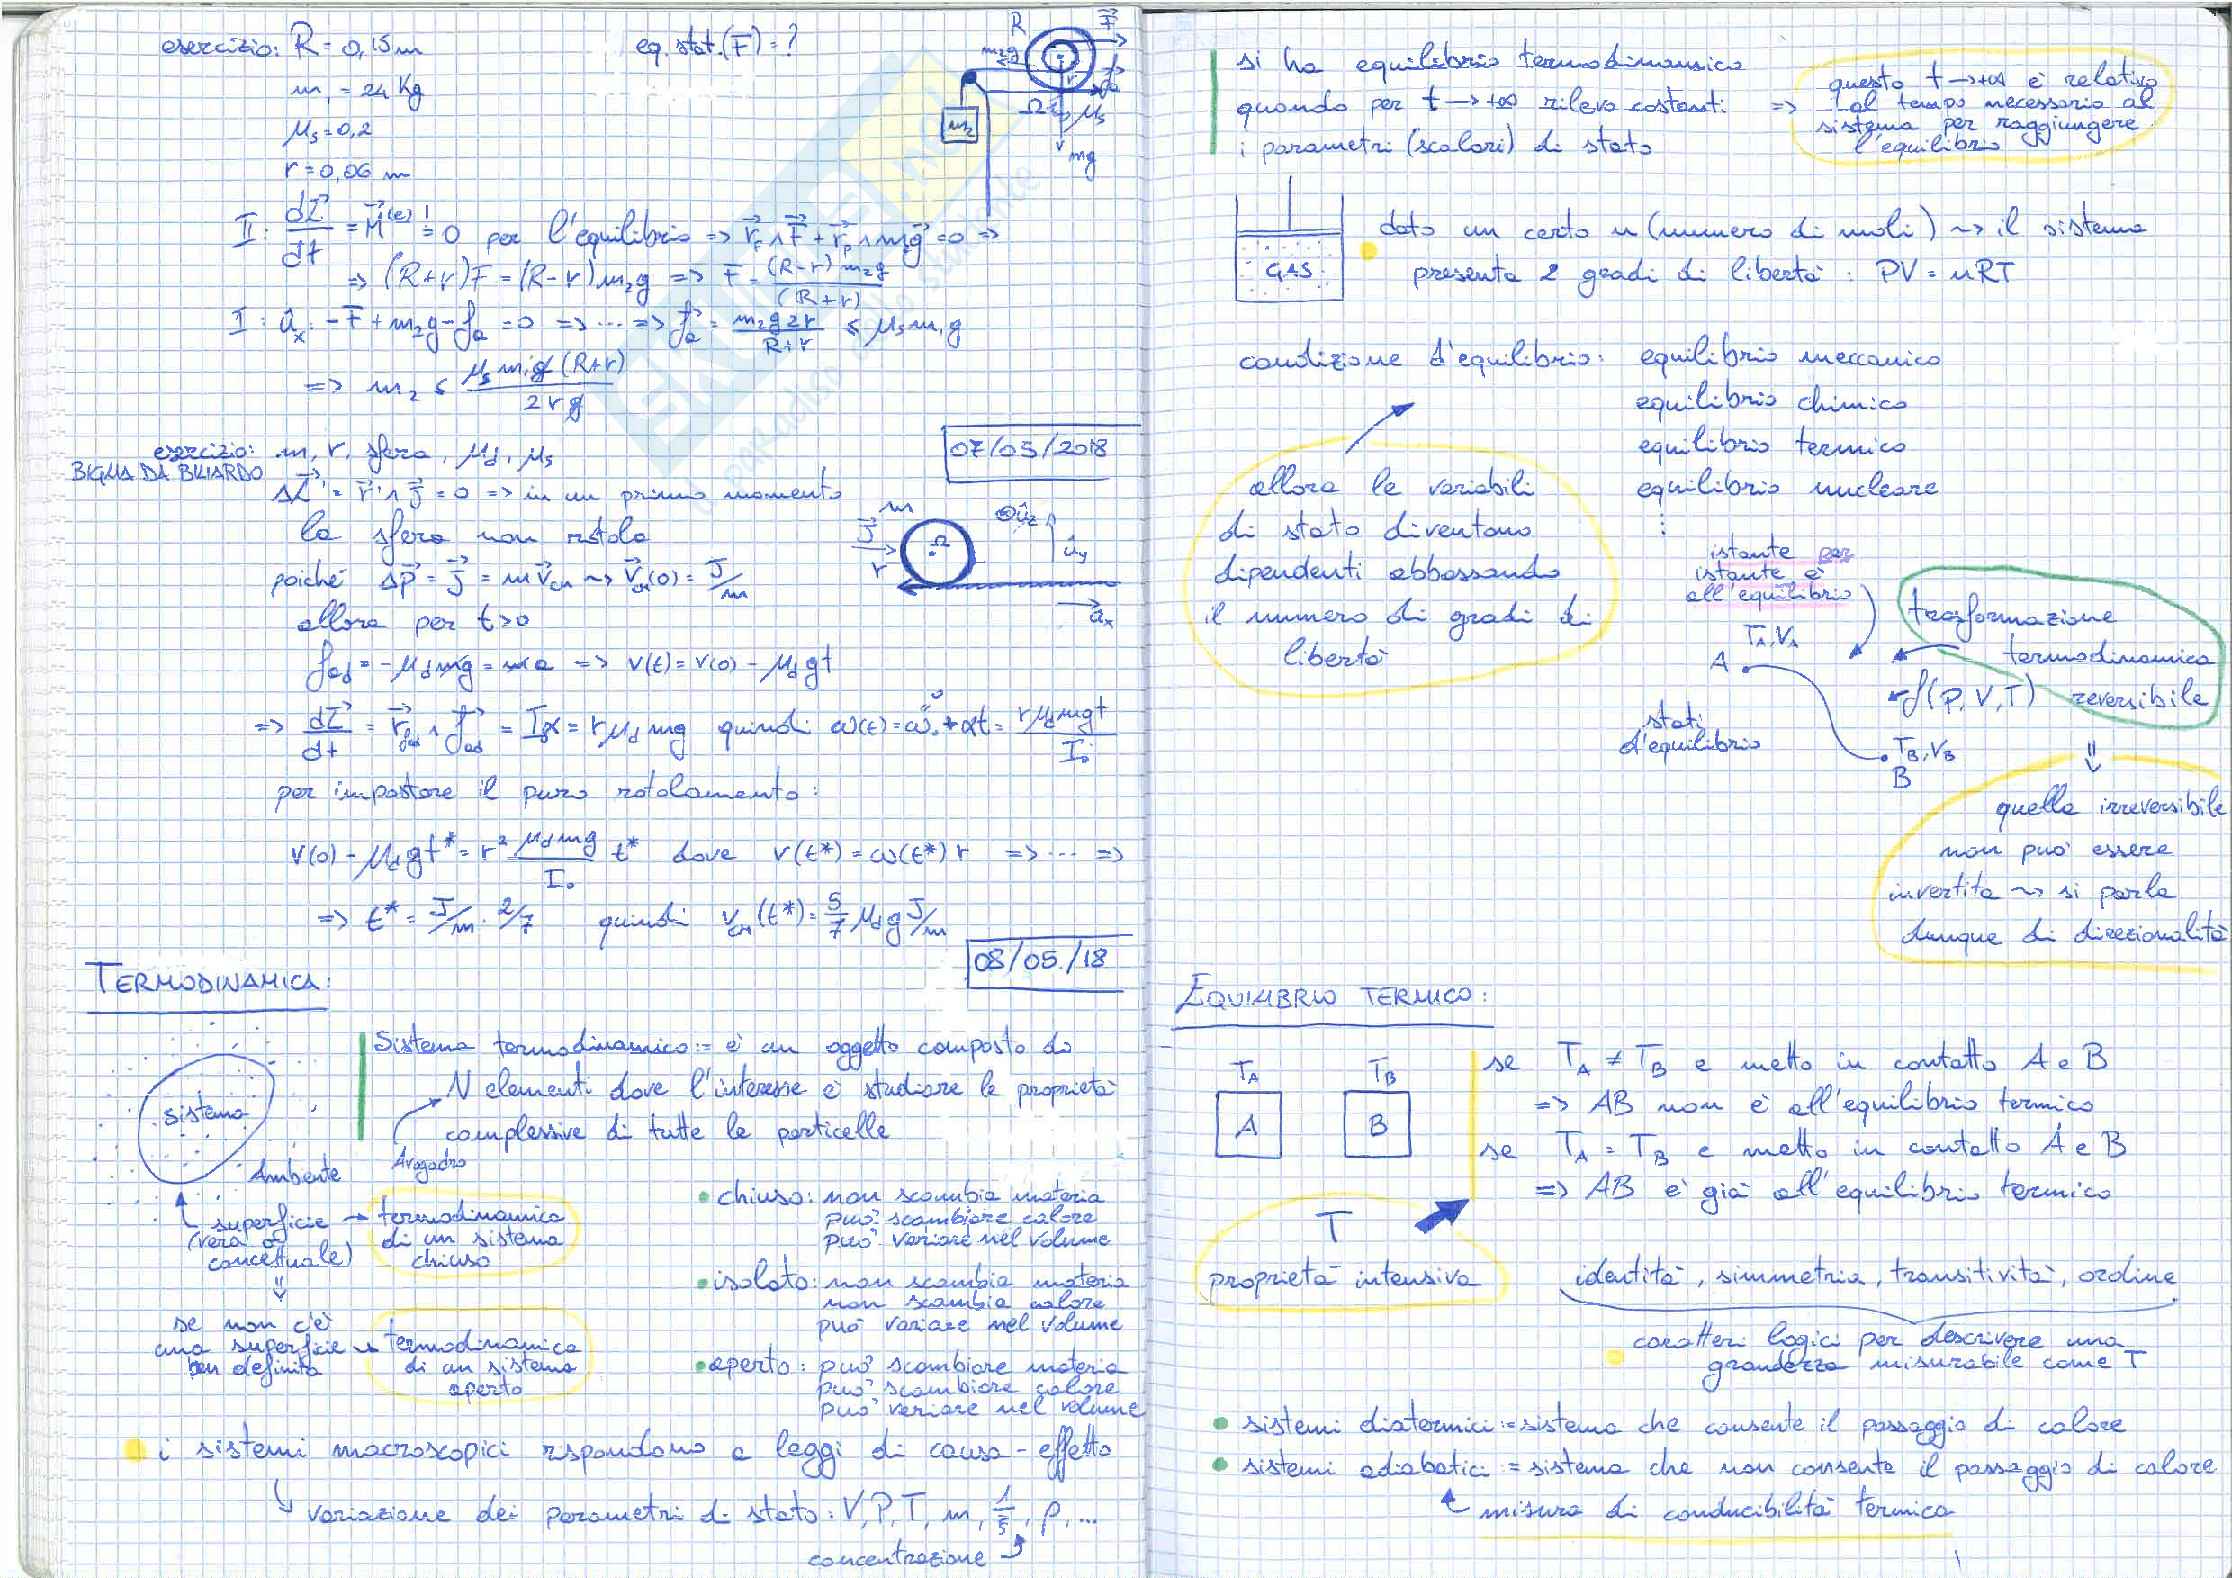 esercizio: R = 0,15 m
eq. stat. (F) = ?
m₁ = 24 Kg
μs = 0,2
r = 0,06 m
R
F
m₂g
r
Ω
μs
m₂
mg
I: dL/dt = M^(e) = 0 per l'equilibrio => r_F ∧ F + r_P ∧ m₂g = 0 =>
=> (R+r)F = (R-r)m₂g => F = (R-r)m₂g/(R+r)
I: û_x: -F + m₂g - f_a = 0 => ... => f_a = m₂g2r/R+r ≤ μs m₁g
=> m₂ ≤ μs m₁g(R+r)/2rg
07/05/2018
esercizio: m, r, sfera, μd, μs
BIGLIA DA BILIARDO
ΔL = r ∧ J = 0 => in un primo momento
la sfera non rotola
poiché Δp = J = m v_cm ~> v_cm(0) = J/m
allora per t>0
m
J
r
Ω
û_z
û_y
û_x
f_ad = -μd mg = ma => v(t) = v(0) - μd gt
=> dL/dt = r_fad ∧ f_ad = I₀α = rμd mg quindi ω(t) = ω₀ + αt = rμd mgt/I₀
per impostare il puro rotolamento:
v(0) - μd gt* = r² μd mg/I₀ t* dove v(t*) = ω(t*)r => ... =>
=> t* = J/m · 2/7 quindi v_cm(t*) = 5/7 μd g J/m
08/05/18
TERMODINAMICA:
Sistema termodinamico := è un oggetto composto da
N elementi dove l'interesse è studiare le proprietà
complessive di tutte le particelle
Avogadro
sistema
Ambiente
superficie → termodinamica
(vera o di un sistema
concettuale) chiuso
⇓
se non c'è
una superficie → termodinamica
ben definita di un sistema
aperto
• chiuso: non scambia materia
può scambiare calore
può variare nel volume
• isolato: non scambia materia
non scambia calore
può variare nel volume
• aperto: può scambiare materia
può scambiare calore
può variare nel volume
• i sistemi macroscopici rispondono a leggi di causa-effetto
variazione dei parametri di stato: V, P, T, m, 1/5, ρ, ...
concentrazione
si ha equilibrio termodinamico
quando per t→+∞ rilevo costanti =>
i parametri (scalari) di stato
questo t→+∞ è relativo
al tempo necessario al
sistema per raggiungere
l'equilibrio
GAS
dato un certo n (numero di moli) ~> il sistema
presenta 2 gradi di libertà : PV = nRT
condizione d'equilibrio: equilibrio meccanico
equilibrio chimico
equilibrio termico
equilibrio nucleare
⋮
allora le variabili
di stato diventano
dipendenti abbassando
il numero di gradi di
libertà
istante per
istante è
all'equilibrio
T_A, V_A
A
trasformazione
termodinamica
reversibile
f(P,V,T)
stati
d'equilibrio
T_B, V_B
B
⇓
quella irreversibile
non può essere
invertita ~> si parla
dunque di direzionalità
EQUILIBRIO TERMICO:
T_A T_B
A B
se T_A ≠ T_B e metto in contatto A e B
=> AB non è all'equilibrio termico
se T_A = T_B e metto in contatto A e B
=> AB è già all'equilibrio termico
T
proprietà intensiva
identità, simmetria, transitività, ordine
caratteri logici per descrivere una
grandezza misurabile come T
• sistemi diatermici := sistema che consente il passaggio di calore
• sistemi adiabatici := sistema che non consente il passaggio di calore
misura di conducibilità termica